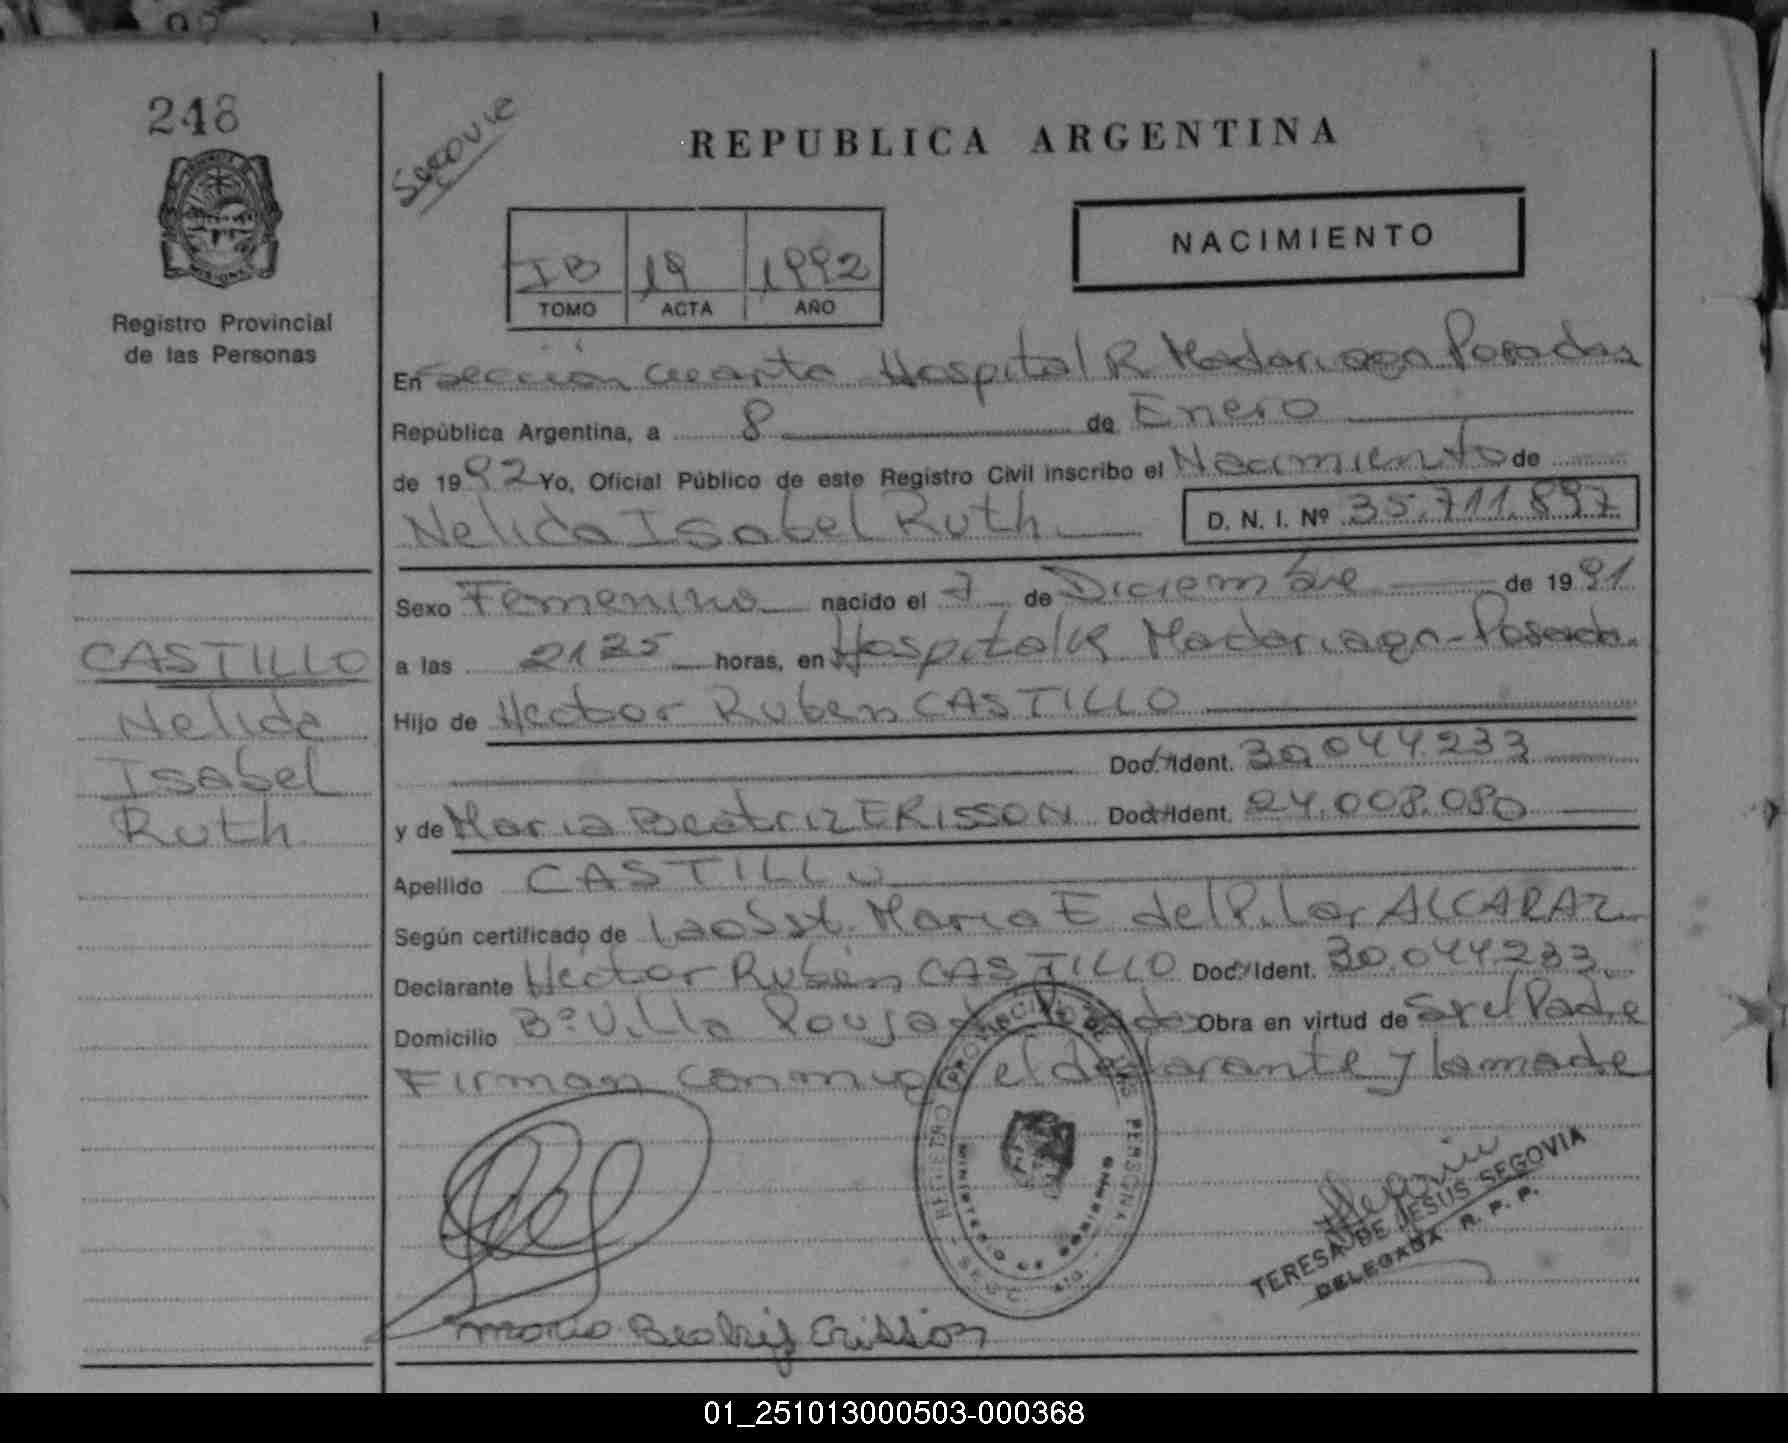 248
Registro Provincial
de las Personas
CASTILLO
Nelida
Isabel
Ruth
Segovie
REPUBLICA ARGENTINA
IB 19 1992
TOMO ACTA AÑO
NACIMIENTO
En Sección cuarta Hospital R Madariaga Posadas
República Argentina, a 8 de Enero
de 1992 Yo, Oficial Público de este Registro Civil inscribo el Nacimiento de
Nelida Isabel Ruth D. N. I. Nº 35.711.897
Sexo Femenino nacido el 7 de Diciembre de 1991
a las 2135 horas, en Hospital R Madariaga-Posadas
Hijo de Hector Ruben CASTILLO
Doc. Ident. 30.044.233
y de Maria Beatriz ERISSON Doc. Ident. 24.008.080
Apellido CASTILLO
Según certificado de la obst. Maria E del Pilar ALCARAZ
Declarante Héctor Rubén CASTILLO Doc. Ident. 30.044.233
Domicilio Bº Villa Poujade Posadas Obra en virtud de ser el Padre
Firman conmigo el declarante y la madre
REGISTRO PROVINCIAL DE LAS PERSONAS
MINISTERIO DE GOBIERNO
TERESA DE JESUS SEGOVIA
DELEGADA R. P. P.
Maria Beatriz Erisson
01_251013000503-000368